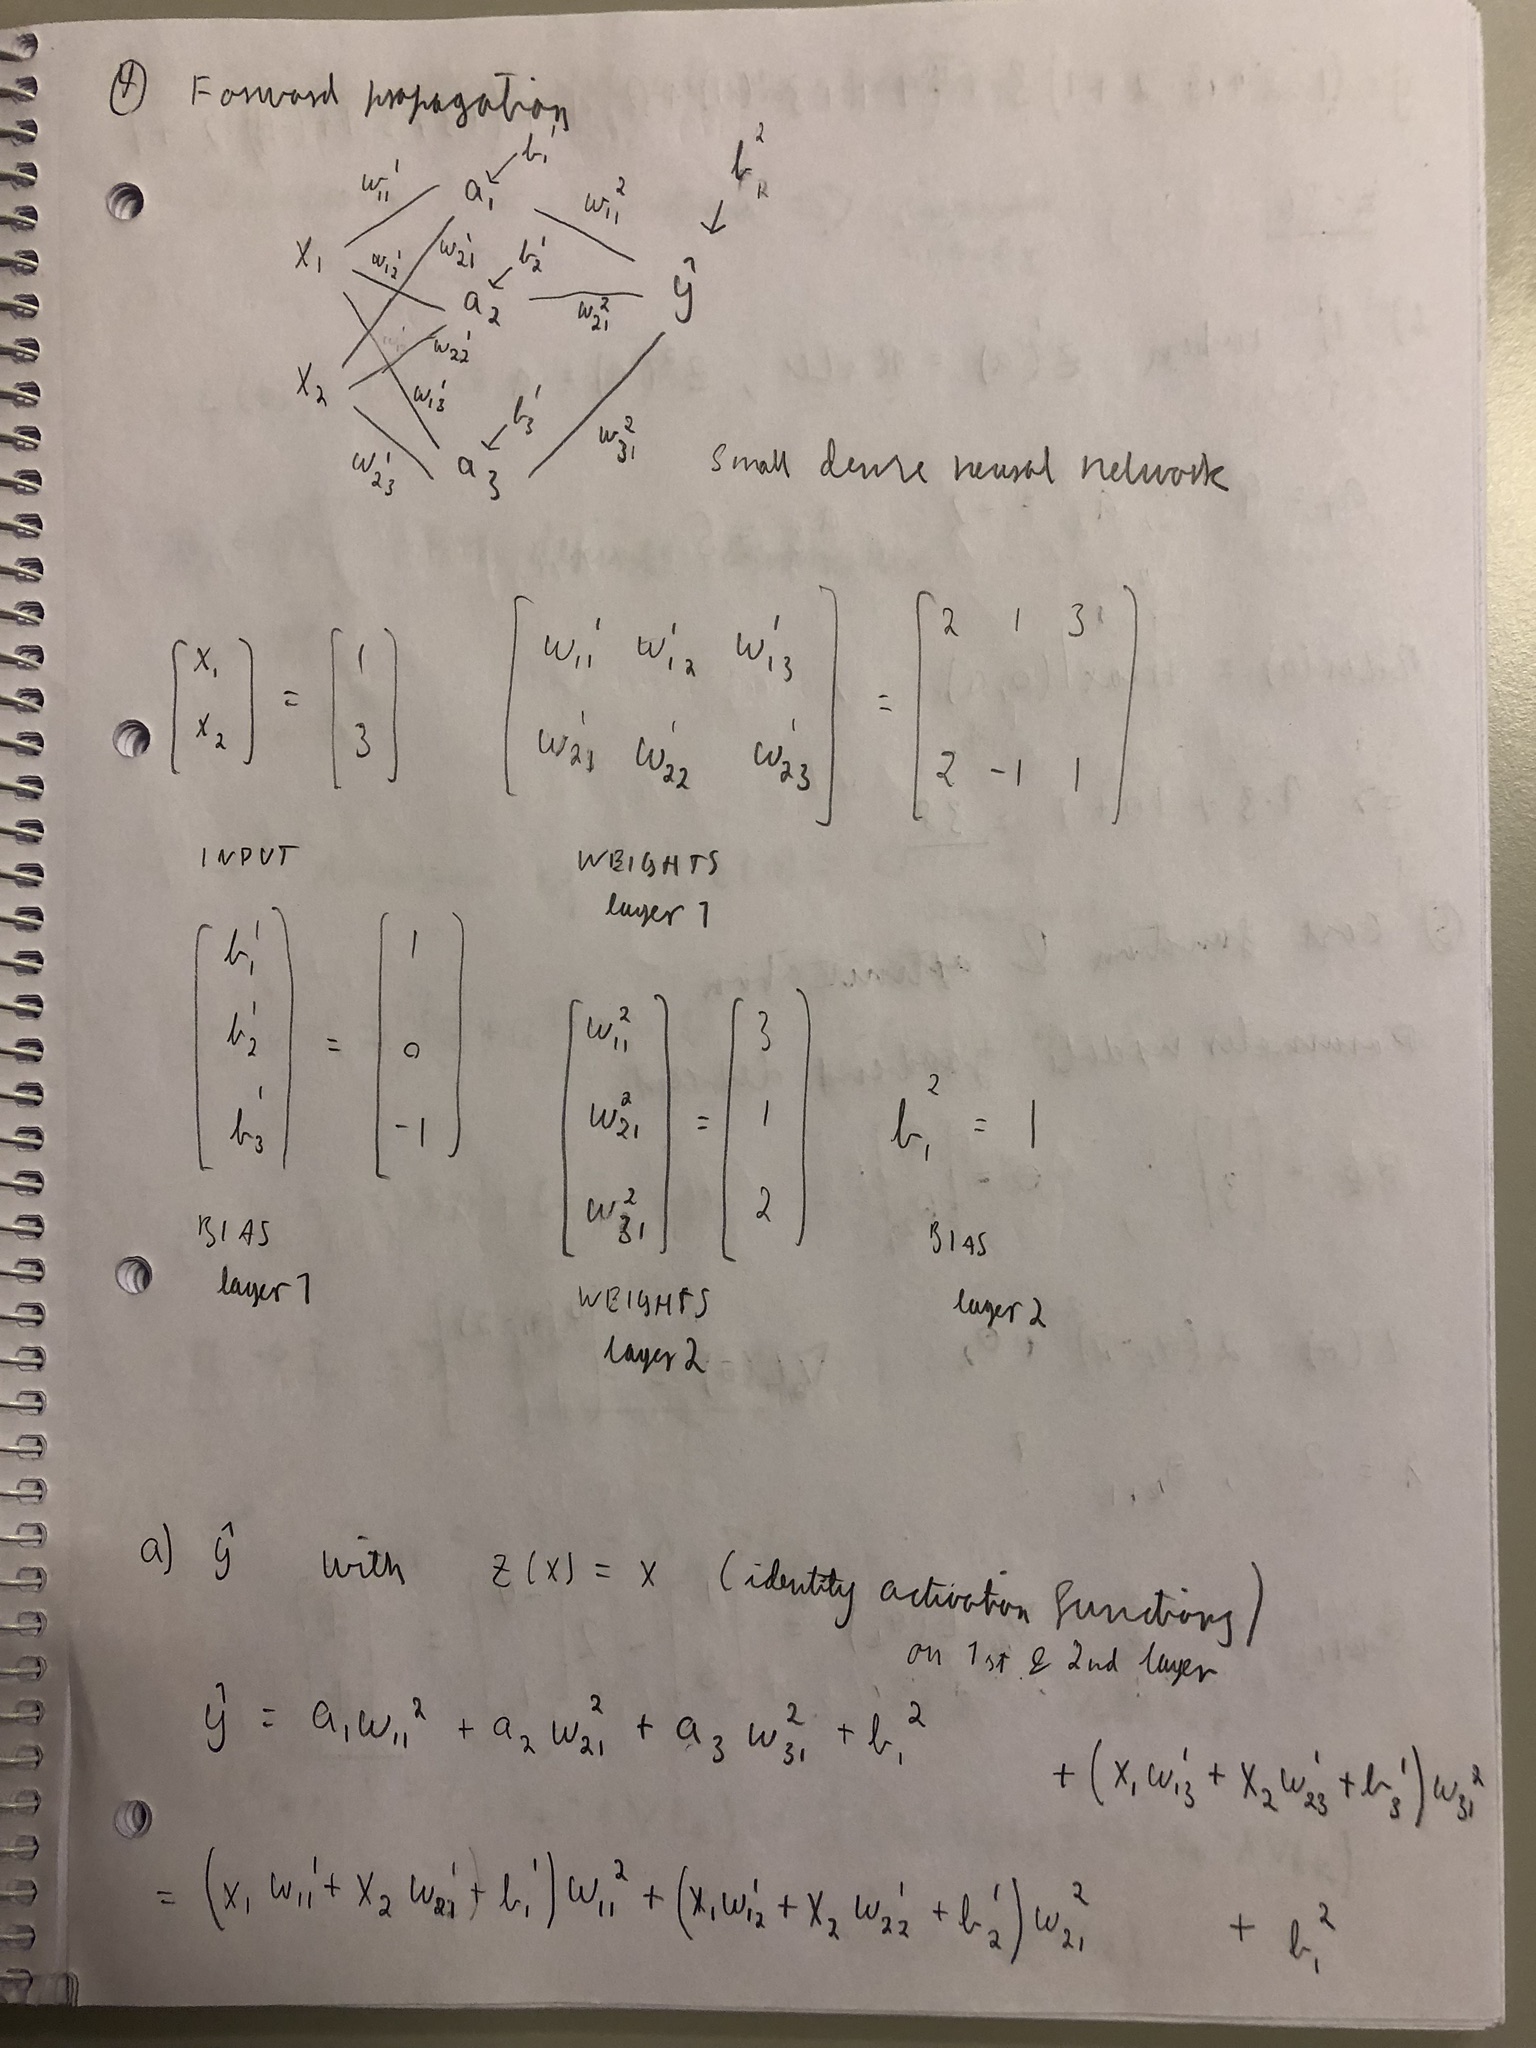 ④ Forward propagation
w₁₁¹ a₁ b₁¹ w₁₁² b₁²
x₁ w₁₂¹ w₂₁¹ b₂¹ ŷ
a₂ w₂₁²
w₂₂¹
x₂ w₁₃¹ b₃¹
w₂₃¹ a₃ w₃₁² Small dense neural network
[x₁ x₂] = [1 3] [w₁₁¹ w₁₂¹ w₁₃¹ w₂₁¹ w₂₂¹ w₂₃¹] = [2 1 3 2 -1 1]
INPUT WEIGHTS
layer 1
[b₁¹ b₂¹ b₃¹] = [1 0 -1] [w₁₁² w₂₁² w₃₁²] = [3 1 2] b₁² = 1
BIAS BIAS
layer 1 WEIGHTS layer 2
layer 2
a) ŷ with z(x) = x (identity activation functions)
on 1st & 2nd layer
ŷ = a₁w₁₁² + a₂w₂₁² + a₃w₃₁² + b₁²
= (x₁w₁₁¹ + x₂w₂₁¹ + b₁¹)w₁₁² + (x₁w₁₂¹ + x₂w₂₂¹ + b₂¹)w₂₁² + (x₁w₁₃¹ + x₂w₂₃¹ + b₃¹)w₃₁² + b₁²